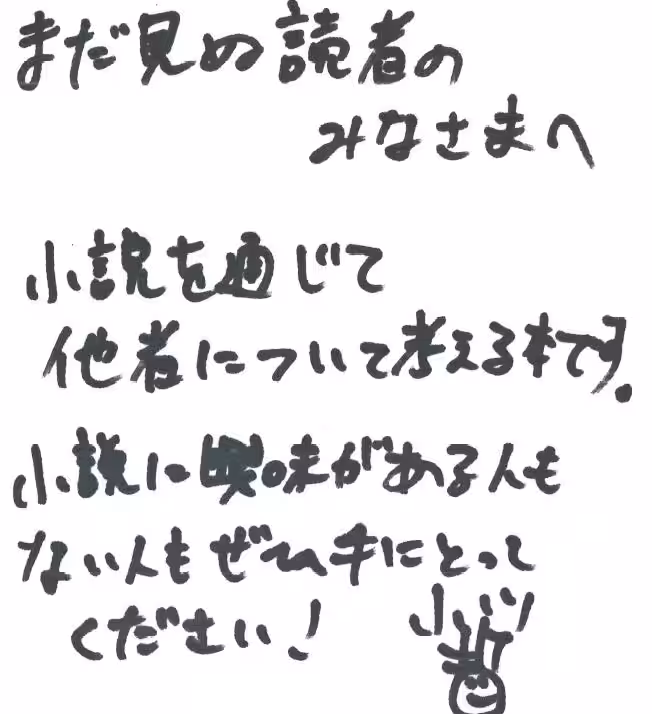 まだ見ぬ読者の
みなさまへ
小説を通じて
他者について考える本です.
小説に興味がある人も
ない人もぜひ手にとって
ください!
小川
哲